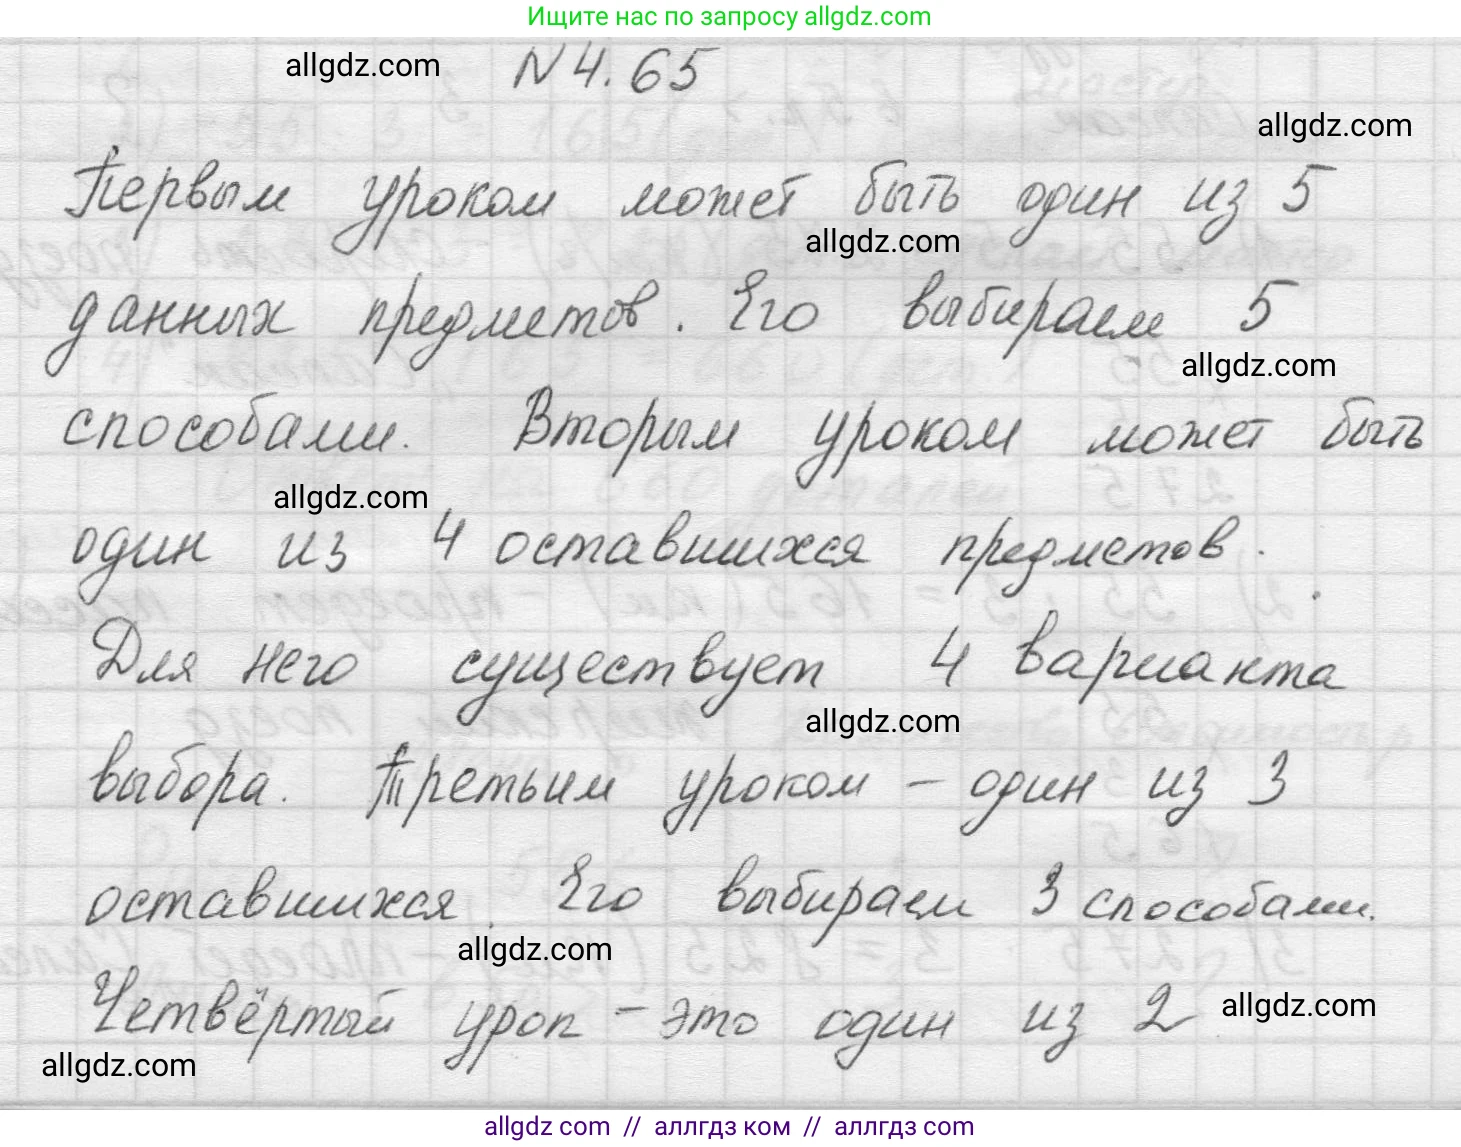 Ищите нас по запросу allgdz.com
allgdz.com
N 4.65
allgdz.com
Первым уроком может быть один из 5
allgdz.com
данных предметов. Его выбираем 5
allgdz.com
способами. Вторым уроком может быть
allgdz.com
один из 4 оставшихся предметов.
Для него существует 4 варианта
allgdz.com
выбора. Третьим уроком – один из 3
оставшихся. Его выбираем 3 способами.
allgdz.com
Четвёртый урок – это один из 2
allgdz.com
allgdz.com
allgdz.com // аллгдз ком // аллгдз.com